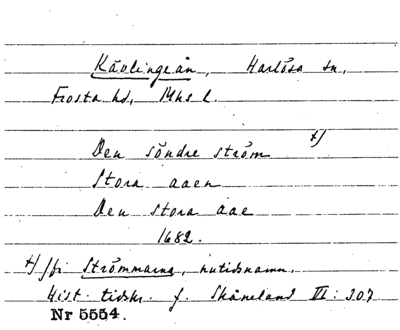 Kävlingeån, Harlösa sn,
Frosta hd, Mhs l.
Den söndre ström x)
Stora aaen
Den stora aae
1682.
x) Jfr Strömmarna, nutidsnamn.
Hist. tidskr. f. Skåneland VI: 307
Nr 5554.